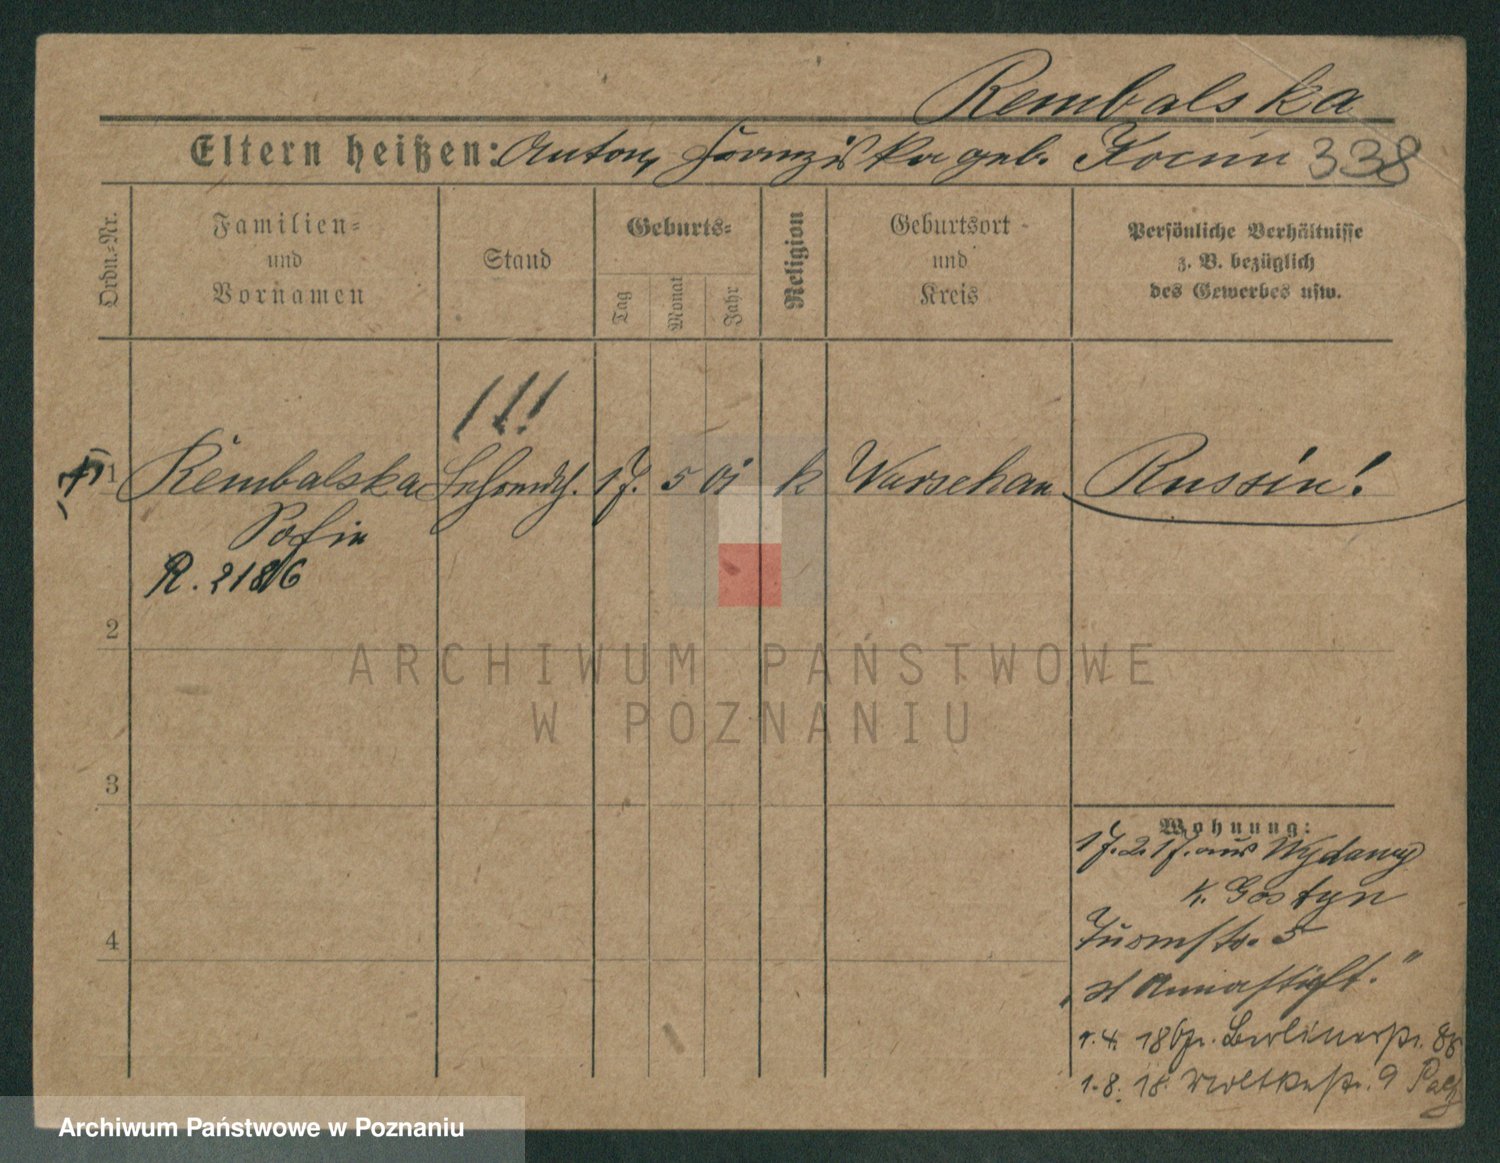 Rembalska
Eltern heißen: Anton, Franziska geb. Kocim 338
Ordn.-Nr.
Familien-
und
Vornamen
Stand
Geburts-
Tag
Monat
Jahr
Religion
Geburtsort
und
Kreis
Persönliche Verhältnisse
z. B. bezüglich
des Gewerbes usw.
!!!
1 Rembalska 17. 5 01 k Warschau Russin!
Sofie
R. 2186
2
3
4
Wohnung:
17. 2. 17. aus Wydawy
K. Gostyn
Turmstr. 5
"St Annastift."
1. 4. 18 Berlinerstr.
1. 8. 18. Moltkestr. 9
ARCHIWUM PAŃSTWOWE
W POZNANIU
Archiwum Państwowe w Poznaniu